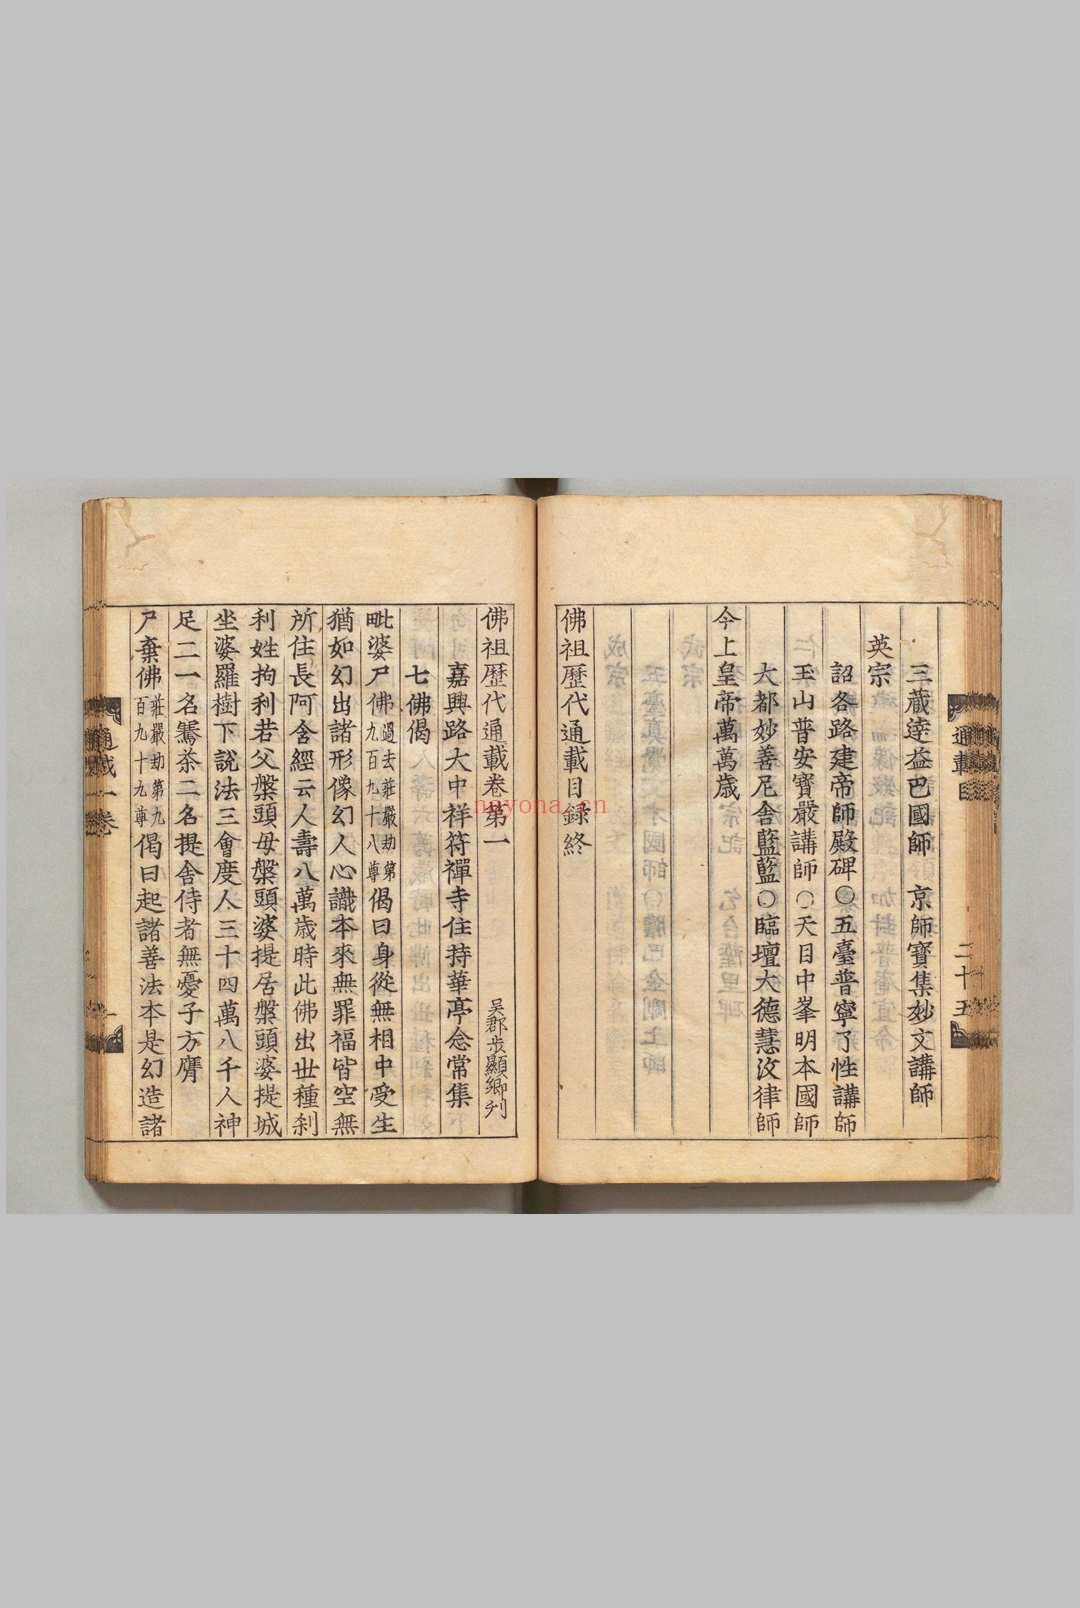 三藏達益巴國師　京師寶集妙文講師
英宗
詔各路建帝師殿碑○五臺普寧了性講師
玉山普安寶嚴講師○天目中峯明本國師
大都妙善尼舍藍藍○臨壇大德慧汶律師
今上皇帝萬萬歲
佛祖歷代通載目録終
通載目
二十五
佛祖歷代通載卷第一
吳郡步顯卿刋
嘉興路大中祥符禪寺住持華亭念常集
七佛偈
毗婆尸佛過去莊嚴劫第九百九十八尊偈曰身從無相中受生
猶如幻出諸形像幻人心識本來無罪福皆空無
所住長阿含經云人壽八萬歲時此佛出世種剎
利姓拘利若父槃頭母槃頭婆提居槃頭婆提城
坐婆羅樹下說法三會度人三十四萬八千人神
足二一名騫茶二名提舍侍者無憂子方膺
尸棄佛莊嚴劫第九百九十九尊偈曰起諸善法本是幻造諸
通載一卷
一
nayona.cn